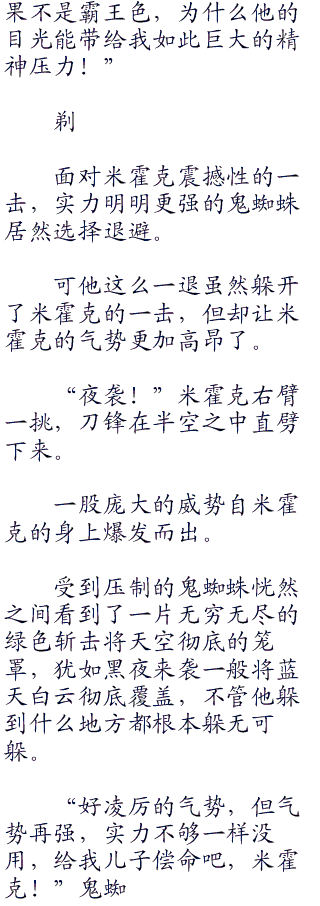 果不是霸王色，为什么他的
目光能带给我如此巨大的精
神压力！”
剃
面对米霍克震撼性的一
击，实力明明更强的鬼蜘蛛
居然选择退避。
可他这么一退虽然躲开
了米霍克的一击，但却让米
霍克的气势更加高昂了。
“夜袭！”米霍克右臂
一挑，刀锋在半空之中直劈
下来。
一股庞大的威势自米霍
克的身上爆发而出。
受到压制的鬼蜘蛛恍然
之间看到了一片无穷无尽的
绿色斩击将天空彻底的笼
罩，犹如黑夜来袭一般将蓝
天白云彻底覆盖，不管他躲
到什么地方都根本躲无可
躲。
“好凌厉的气势，但气
势再强，实力不够一样没
用，给我儿子偿命吧，米霍
克！”鬼蜘